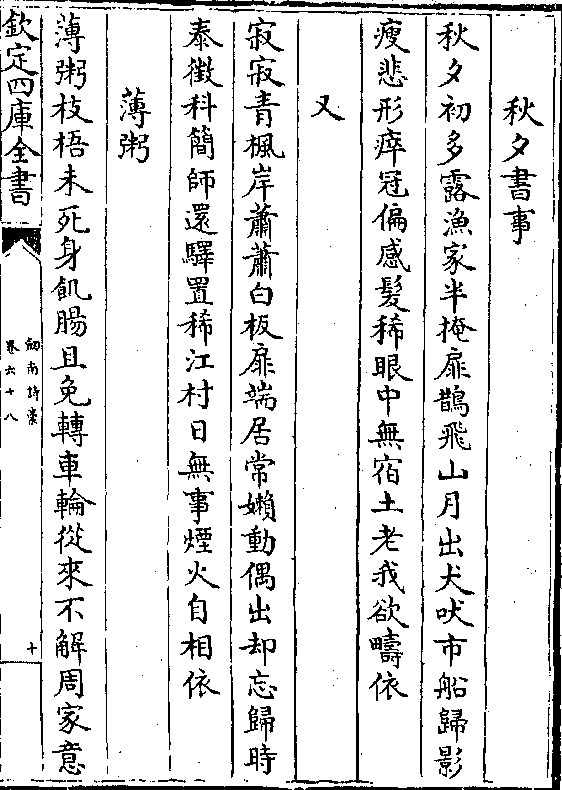 秋夕書事
秋夕初多露漁家半掩扉鵲飛山月出犬吠市船歸影
瘦悲形瘁冠偏感髮稀眼中無宿土老我欲疇依
又
寂寂青楓岸蕭蕭白板扉端居常嬾動偶出却忘歸時
泰徴科簡師還驛置稀江村日無事煙火自相依
薄粥
薄粥枝梧未死身飢腸且免轉車輪從來不解周家意
欽定四庫全書
劎南詩槀
卷六十八
十